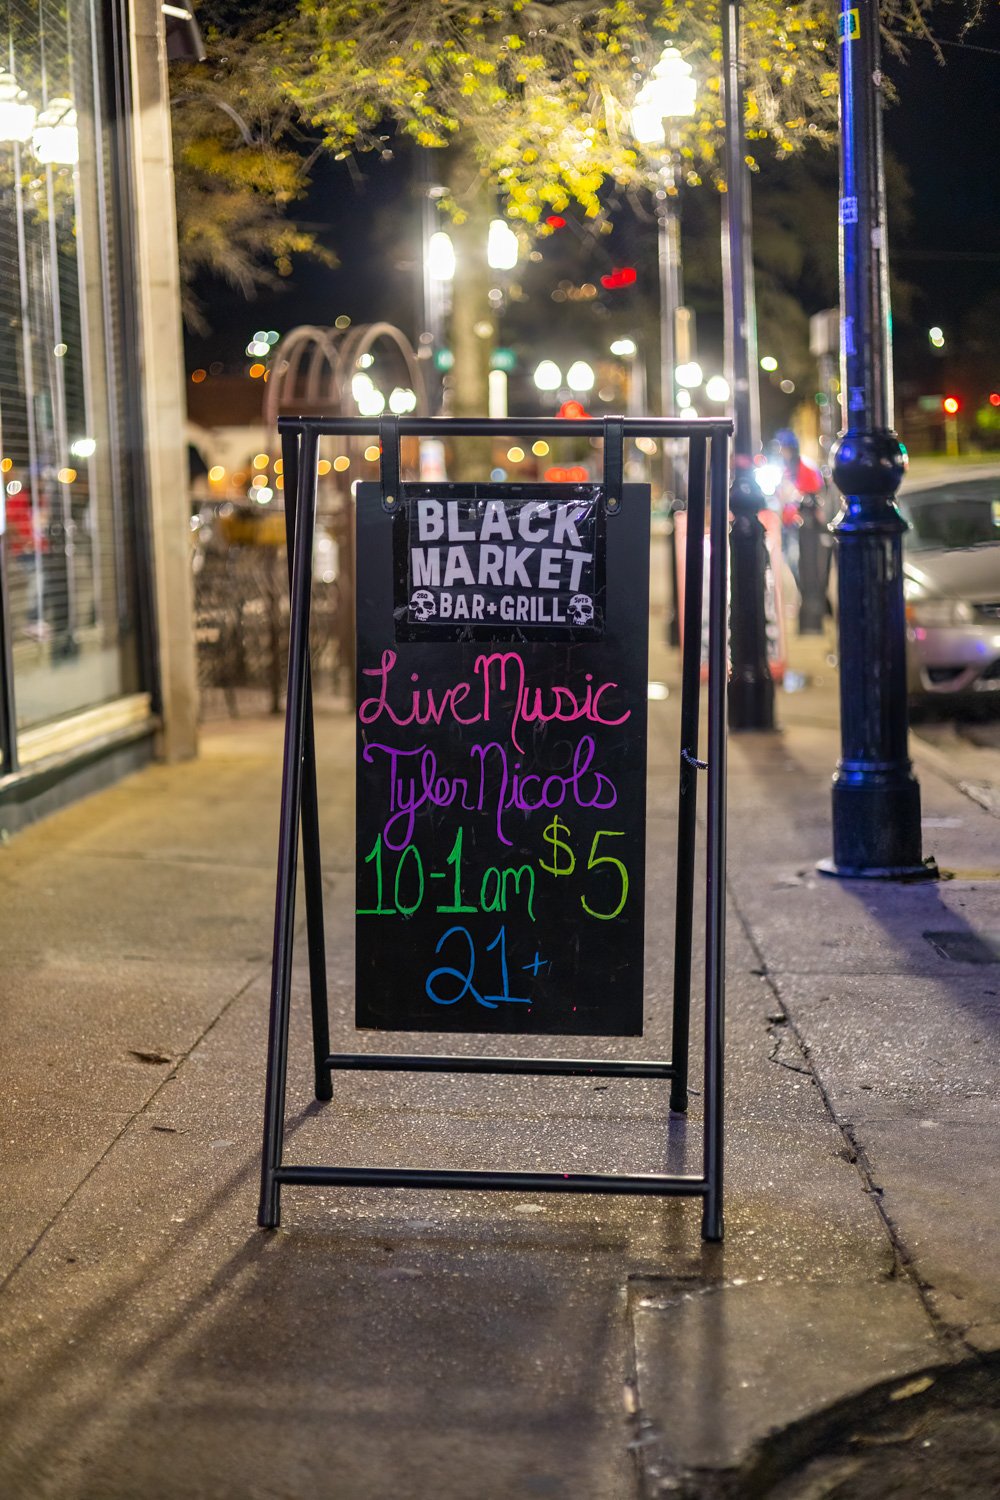 BLACK
MARKET
280 BAR+GRILL 5PTS
Live Music
Tyler Nicols
10-1am $5
21+